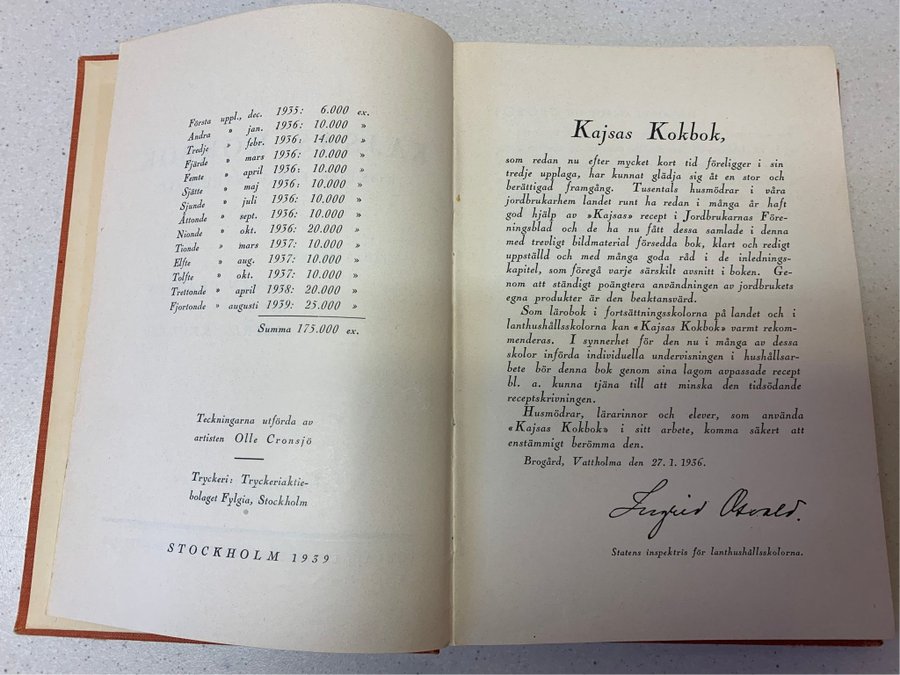 Första uppl., dec. 1935: 6.000 ex.
Andra » jan. 1936: 10.000 »
Tredje » febr. 1936: 14.000 »
Fjärde » mars 1936: 10.000 »
Femte » april 1936: 10.000 »
Sjätte » maj 1936: 10.000 »
Sjunde » juli 1936: 10.000 »
Åttonde » sept. 1936: 10.000 »
Nionde » okt. 1936: 20.000 »
Tionde » mars 1937: 10.000 »
Elfte » aug. 1937: 10.000 »
Tolfte » okt. 1937: 10.000 »
Trettonde » april 1938: 20.000 »
Fjortonde » augusti 1939: 25.000 »
Summa 175.000 ex.
Teckningarna utförda av
artisten Olle Cronsjö
Tryckeri: Tryckeriaktie-
bolaget Fylgia, Stockholm
STOCKHOLM 1939
Kajsas Kokbok,
som redan nu efter mycket kort tid föreligger i sin
tredje upplaga, har kunnat glädja sig åt en stor och
berättigad framgång. Tusentals husmödrar i våra
jordbrukarhem landet runt ha redan i många år haft
god hjälp av »Kajsas» recept i Jordbrukarnas Före-
ningsblad och de ha nu fått dessa samlade i denna
med trevligt bildmaterial försedda bok, klart och redigt
uppställd och med många goda råd i de inlednings-
kapitel, som föregå varje särskilt avsnitt i boken. Ge-
nom att ständigt poängtera användningen av jordbrukets
egna produkter är den beaktansvärd.
Som lärobok i fortsättningsskolorna på landet och i
lanthushållsskolorna kan «Kajsas Kokbok» varmt rekom-
menderas. I synnerhet för den nu i många av dessa
skolor införda individuella undervisningen i hushållsar-
bete bör denna bok genom sina lagom avpassade recept
bl. a. kunna tjäna till att minska den tidsödande
receptskrivningen.
Husmödrar, lärarinnor och elever, som använda
«Kajsas Kokbok» i sitt arbete, komma säkert att
enstämmigt berömma den.
Brogård, Vattholma den 27. 1. 1936.
Ingrid Osvald.
Statens inspektris för lanthushållsskolorna.